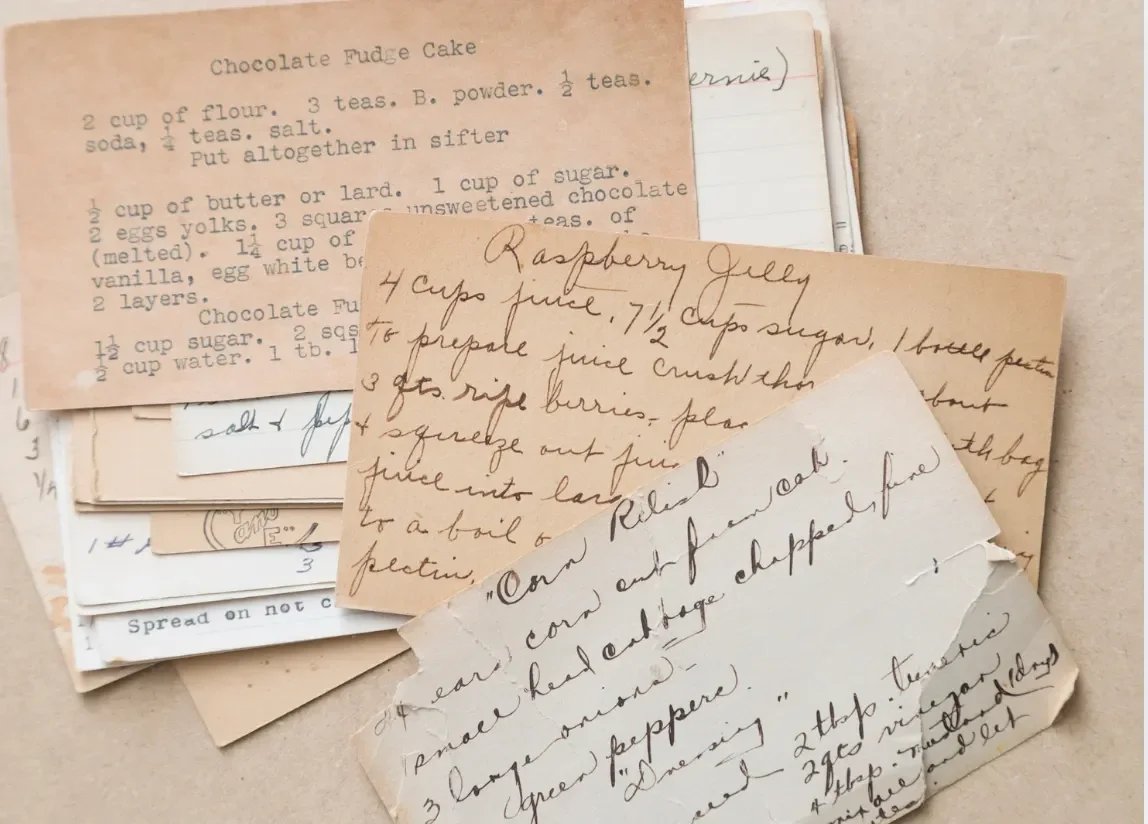 Chocolate Fudge Cake
2 cup of flour. 3 teas. B. powder. ½ teas.
soda, ¼ teas. salt.
Put altogether in sifter
½ cup of butter or lard. 1 cup of sugar.
2 eggs yolks. 3 squar unsweetened chocolate
(melted). 1¼ cup of teas. of
vanilla, egg white be
2 layers.
Chocolate Fu
1½ cup sugar. 2 sqs
½ cup water. 1 tb. 1
ernie)
salt & pep
"Y and E"
1 #
3
Spread on not c
8
1
6
3
Raspberry Jelly
4 cups juice, 7½ cups sugar, 1 bottle pectin
to prepare juice crush thor about
3 qts. ripe berries - plac
& squeeze out jui th bag
juice into lar
to a boil
pectin.
"Corn Relish"
ears corn cut from cob.
small head cabbage chopped fine
3 large onions -
green peppers.
"Dressing"
2 tbsp. tumeric
2 qts vinegar
4 tbsp. mustard (dry)
mix all and let